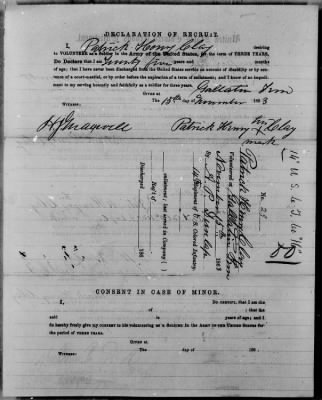 DECLARATION OF RECRUIT.
I, Patrick Henry Clay desiring
to VOLUNTEER as a Soldier in the Army of the United States, for the term of THREE YEARS,
Do Declare that I am Twenty five years and months
of age; that I have never been discharged from the United States service on account of disability or by sen-
tence of a court-martial, or by order before the expiration of a term of enlistment; and I know of no impedi-
ment to my serving honestly and faithfully as a soldier for three years.
GIVEN at Gallatin Tenn
The 18th day of November 1863
WITNESS:
Patrick Henry his X Clay
mark
14" U. S. C. T. Co "H"
No. 28
Patrick Henry Clay
Volunteered at Gallatin Tenn
November 18 1863
By
14 Regiment of U. S. Colored Infantry
enlistment; last served in Company ( )
Reg't of
Discharged 186
CONSENT IN CASE OF MINOR.
I, DO CERTIFY, that I am the
of ; that the
said is years of age; and I
do hereby freely give my CONSENT to his volunteering as a SOLDIER in the ARMY OF THE UNITED STATES for the
period of THREE YEARS.
GIVEN at
The day of 186 .
WITNESS: